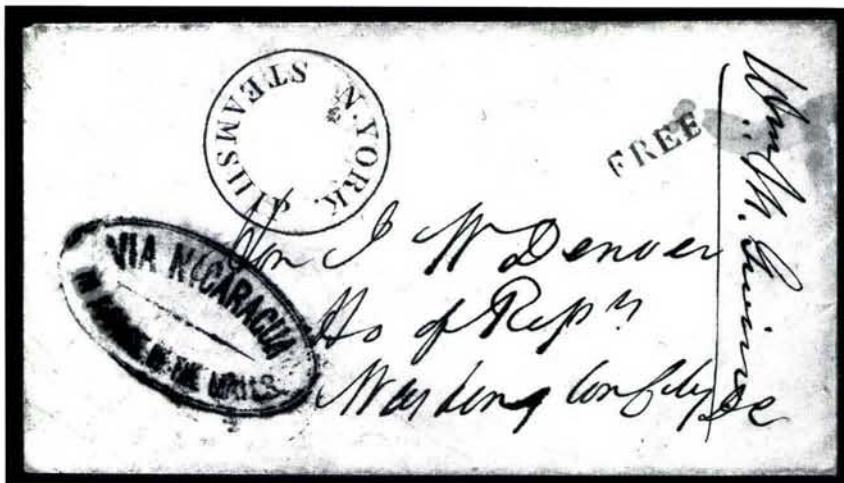 N. YORK. STEAMSHIP
FREE
Wm M. Gwin
VIA NICARAGUA
IN ADVANCE OF THE MAILS.
Hon J W Denver
Ho of Reps
Washington City
DC